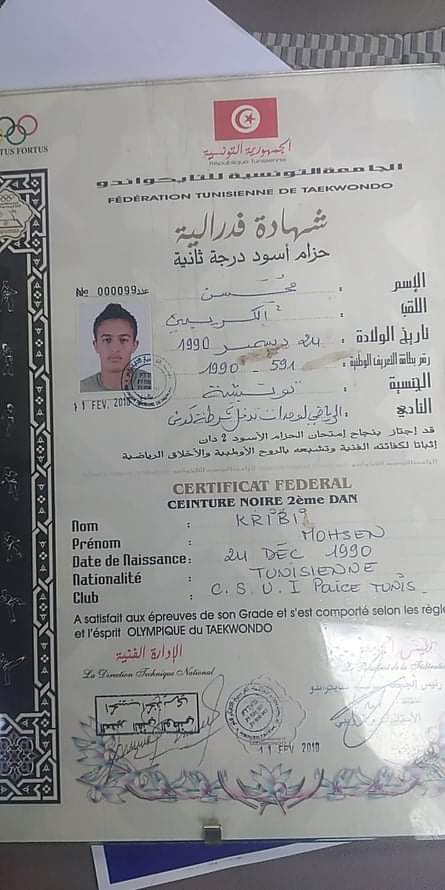 TUS FORTUS
الجمهورية التونسية
République Tunisienne
الجامعة التونسية للتايكواندو
FÉDÉRATION TUNISIENNE DE TAEKWONDO
شهادة فدرالية
حزام أسود درجة ثانية
№ 000099 عدد
الإسم : محسن
اللقب : الكريبي
تاريخ الولادة : 24 ديسمبر 1990
رقم بطاقة التعريف الوطنية : 591 - 1990
الجنسية : تونسية
النادي : الرياضي لوحدات تدخل شرطة تونس
11 FEV. 2010
قد إجتاز بنجاح إمتحان الحزام الأسود 2 دان
إثباتا لكفائته الفنية وتشبعه بالروح الأولمبية والأخلاق الرياضية
CERTIFICAT FEDERAL
CEINTURE NOIRE 2ème DAN
Nom : KRIBI
Prénom : MOHSEN
Date de Naissance : 24 DÉC 1990
Nationalité : TUNISIENNE
Club : C.S.U.I Police TUNIS
A satisfait aux épreuves de son Grade et s'est comporté selon les règle
et l'ésprit OLYMPIQUE du TAEKWONDO
الإدارة الفنية
La Direction Technique National
رئيس
Le Président de la Fédération
11 FEV 2010